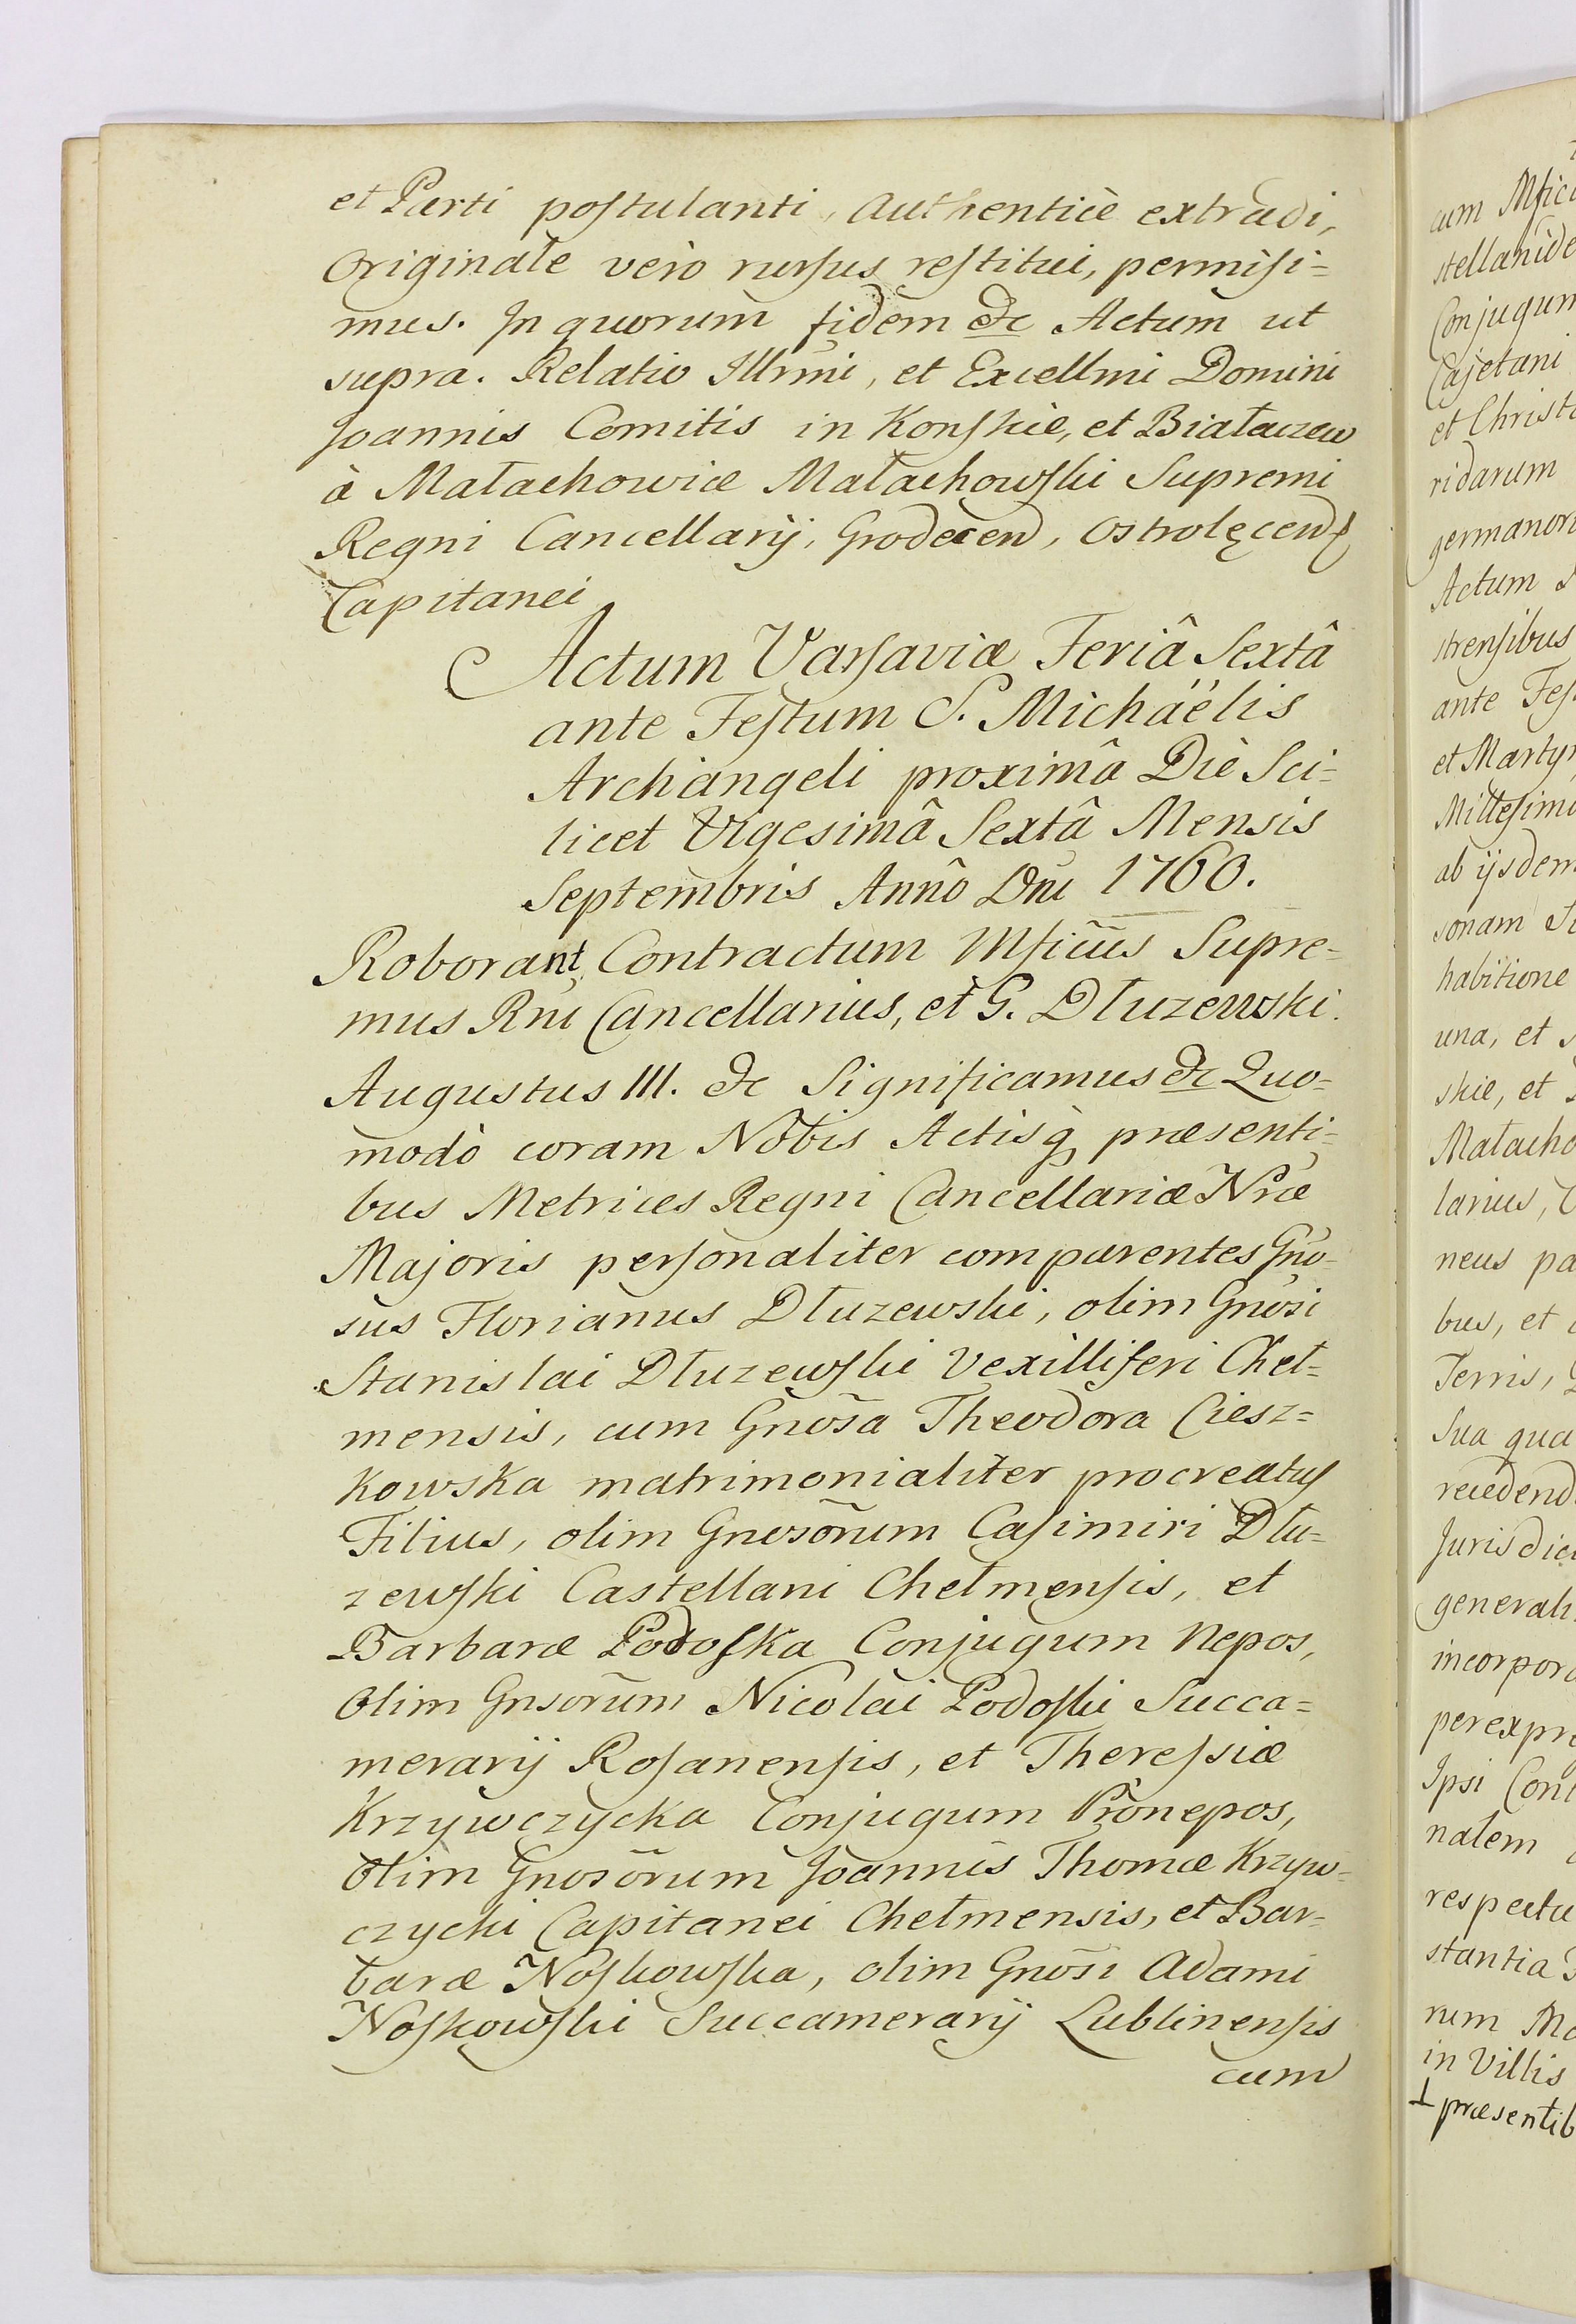 et Parti postulanti, Authenticè extradi,
Originale verò rursus restitui, permisi=
mus. In quorum fidem &c Actum ut
supra. Relatio Illrmi, et Excellmi Domini
Joannis Comitis in Konskie, et Białaczew
à Małachowice Małachowski Supremi
Regni Cancellarij, Grodecen, Ostrolęcen
Capitanei
Actum Varsaviæ Feriâ Sextâ
ante Festum S. Michäelis
Archangeli proximâ Die Sci=
licet Vigesimâ Sextâ Mensis
Septembris Annô Dni 1760.
Roborant Contractum Mficus Supre=
mus Rni Cancellarius, et G. Dłuzewski.
Augustus III. &c Significamus &c Quo=
modò coram Nobis Actisq præsenti=
bus Metrices Regni Cancellariæ Nræ
Majoris personaliter comparentes Gno=
sus Florianus Dłuzewski, olim Gnosi
Stanislai Dłuzewski Vexilliferi Cheł=
mensis, cum Gnosa Theodora Ciesz=
kowska matrimonialiter procreatus
Filius, olim Gnosorum Casimiri Dłu=
zewski Castellani Chełmensis, et
Barbaræ Podoska Conjugum Nepos,
Olim Gnsorum Nicolai Podoski Succa=
merarij Rosanensis, et Theressiæ
Krzywczycka Conjugum Pronepos,
Olim Gnosorum Joannis Thomæ Krzyw=
czycki Capitanei Chełmensis, et Bar=
baræ Noskowska, olim Gnosi Adami
Noskowski Succamerarij Lublinensis
cum
cum
Conjugum
Cajetani
ridarum
Actum
ante
sonam
habitione
una, et
skie, et
larius,
neus
bus, et
Terris,
Sua
Ipsi
nalem
stantia
rum
in Villis